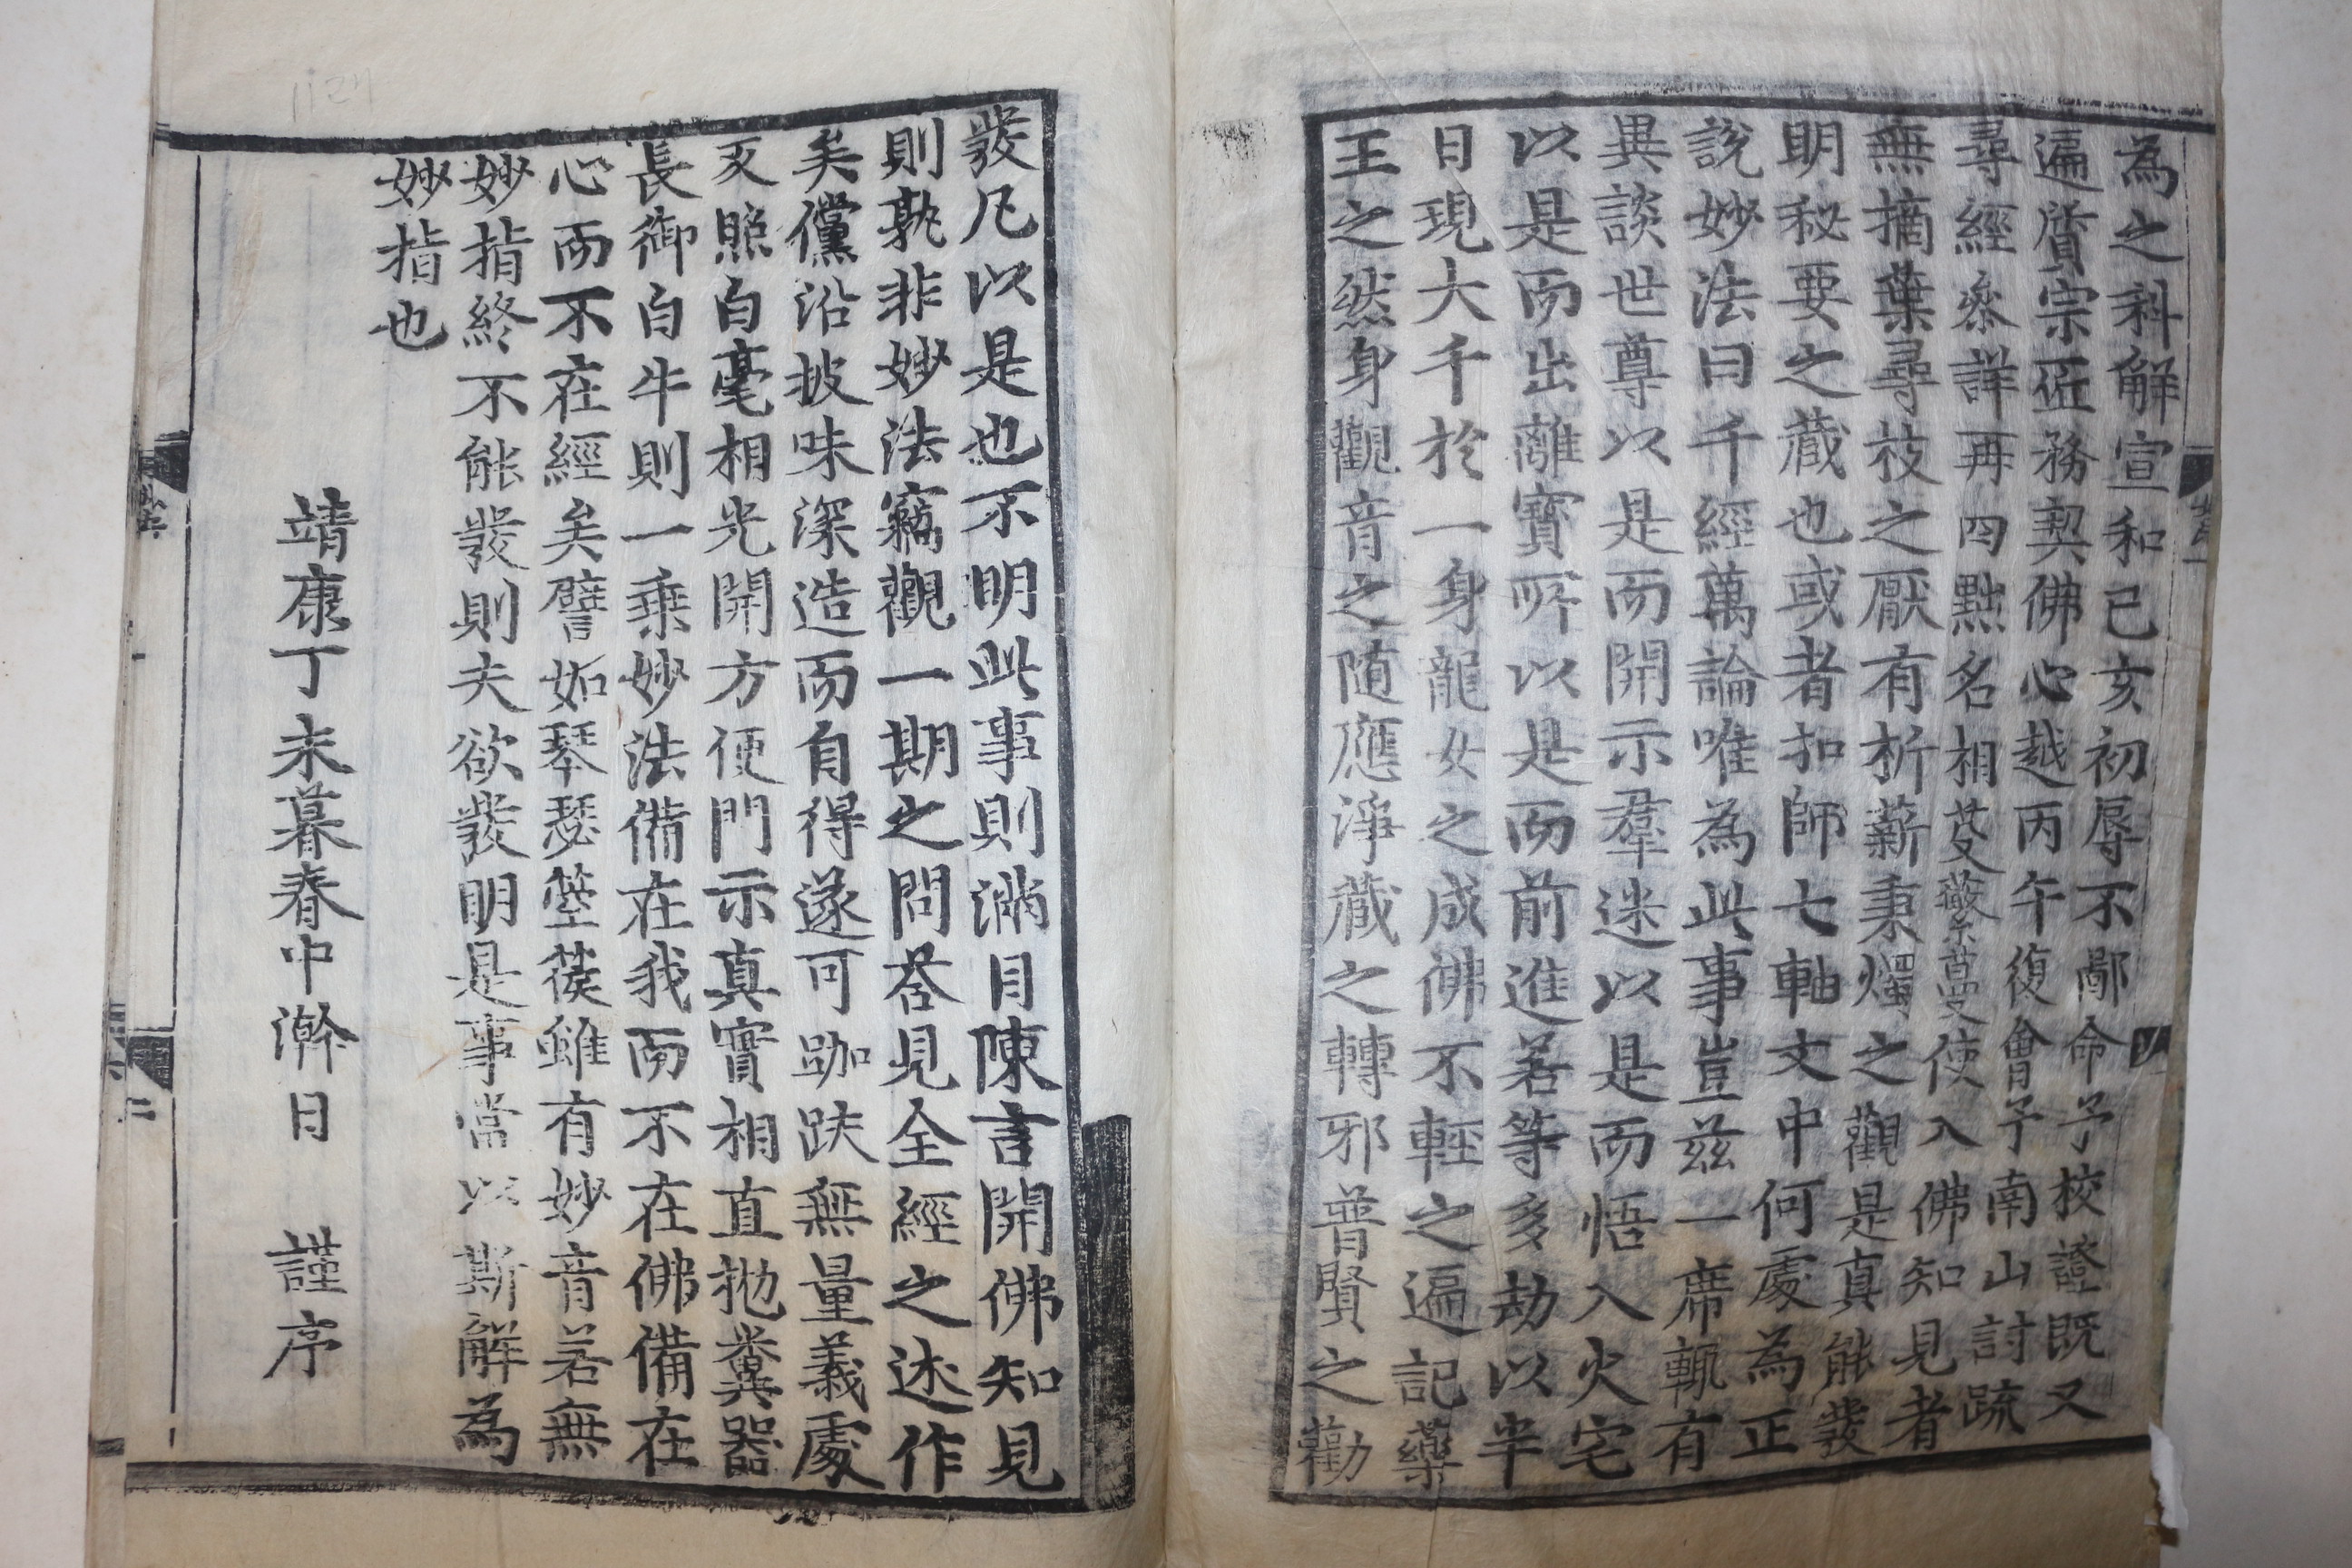 為之科解宣和己亥初辱不鄙命予校證既又
遍贋宗匠務契佛心越丙午復會予南山討疏
尋經叅詳再四㸃名相芟薇系蔓使入佛知見者
無摘葉尋枝之厭有析薪秉燭之觀是真能發
明秘要之藏也或者扣師七軸文中何處為正
說妙法曰千經萬論唯為此事豈兹一席輒有
異談世尊以是而開示羣迷以是而悟入火宅
以是而出離寶所以是而前進若等多劫以半
日現大千於一身龍女之成佛不輕之遍記藥
王之然身觀音之随應淨藏之轉邪普賢之勸
發凡以是也不明此事則滿目陳言開佛知見
則孰非妙法竊觀一期之問荅見全經之述作
矣儻沿披味深造而自得遂可跏趺無量義處
叉照白毫相光開方便門示真實相直抛糞器
長御白牛則一乗妙法備在我而不在佛備在
心而不在經矣譬如琴瑟箜篌雖有妙音若無
妙指終不能發則夫欲發明是事當以斯解為
妙指也
靖康丁未暮春中澣日 謹序